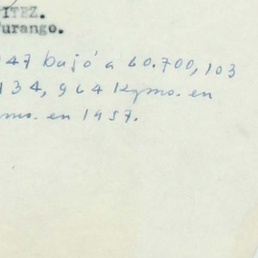 ITEZ.
urango.
47 bajó a 60.700,103
134,964 kgmo. en
mo. en 1957.